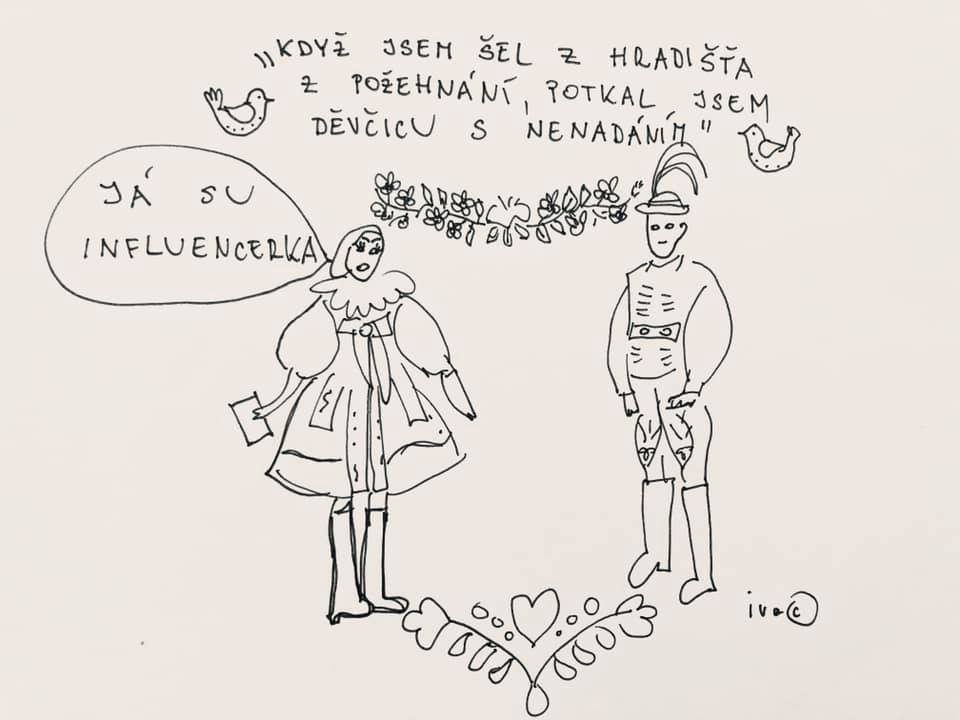 „KDYŽ JSEM ŠEL Z HRADIŠŤA
Z POŽEHNÁNÍ, POTKAL JSEM
DĚVČICU S NENADÁNÍM"
JÁ SU
INFLUENCERKA
iva ©